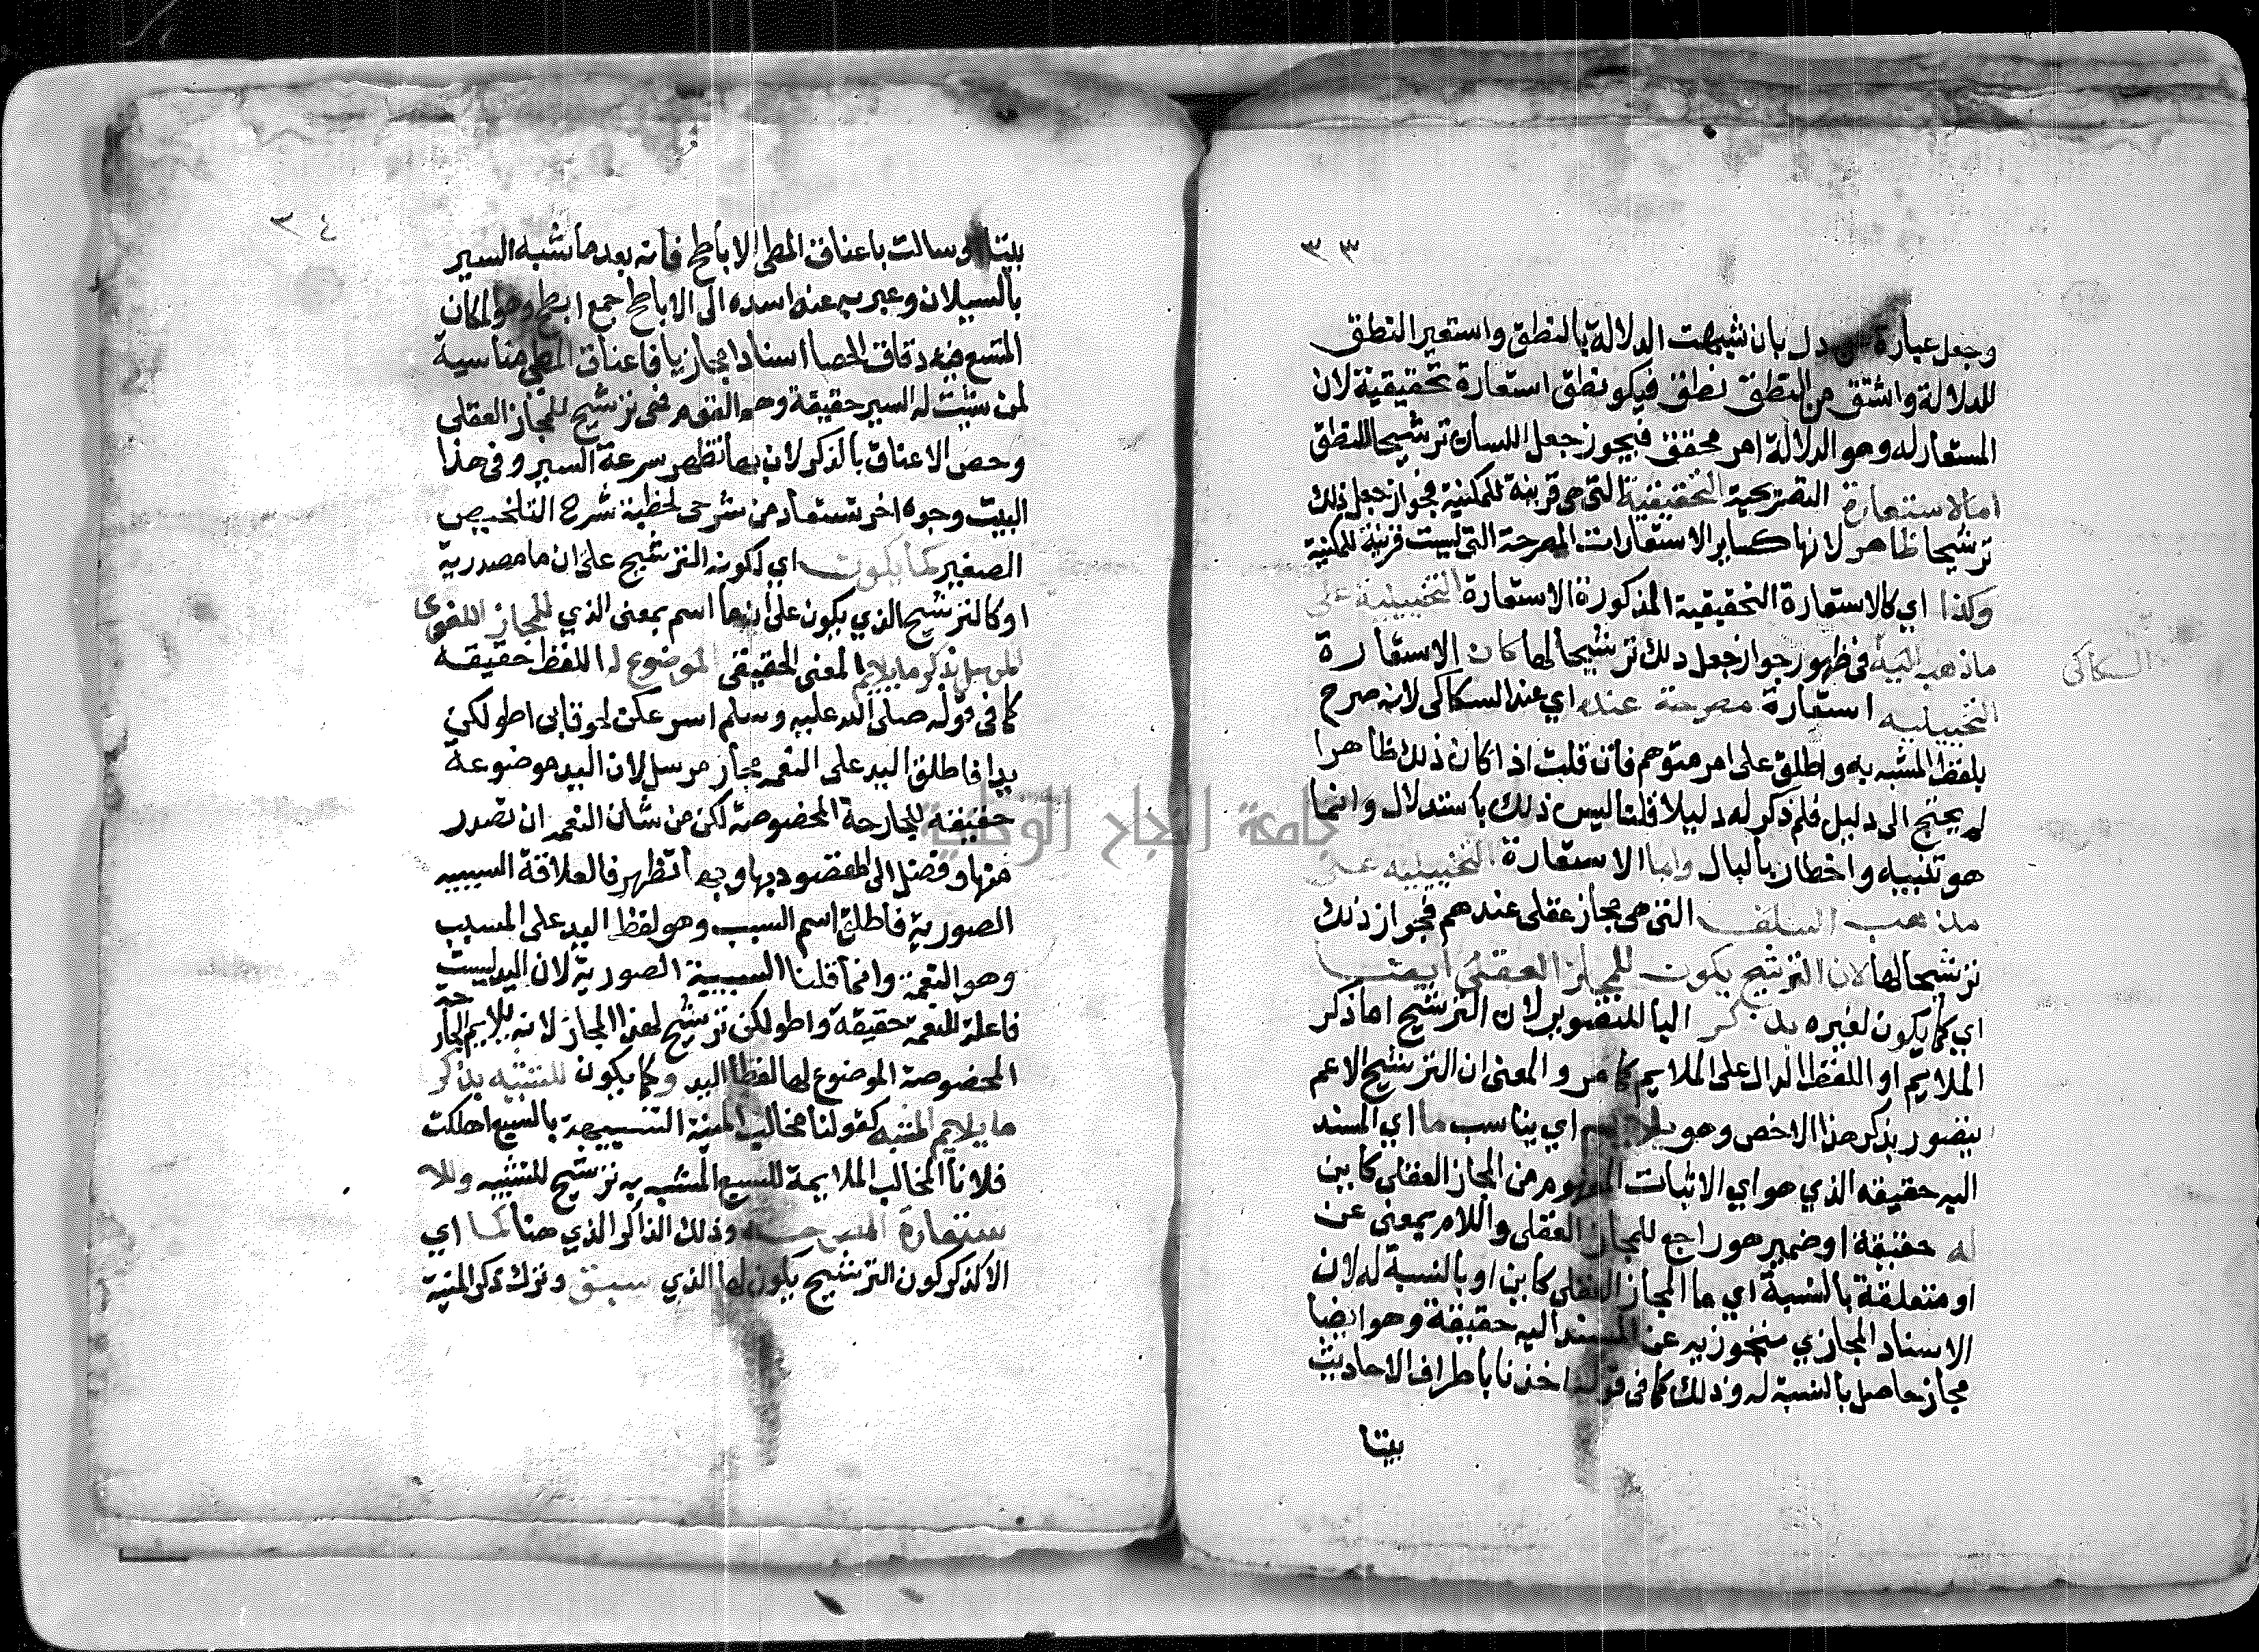 ٣٣
وجعل عبارة عن دل بان شبهت الدلالة بالنطق واستعير النطق
للدلالة واشتق من النطق نطق فيكو نطق استعارة تحقيقية لان
المستعار له وهو الدلالة امر محقق فيجوز جعل اللسان ترشيحا للنطق
اما الاستعارة التصريحية التحقيقية التي هي قرينة للمكنية فجواز جعل ذلك
ترشيحا ظاهر لانها كساير الاستعارات المصرحة التي ليست قرينة للمكنية
وكذا اي كالاستعارة التحقيقية المذكورة الاستعارة التخييلية على
ماذهب اليه في ظهور جواز جعل ذلك ترشيحا لها كان الاستعارة
السكاكي
التخييلية استعارة مصرحة عنده اي عند السكاكي لانه صرح
بلفظ المشبه به واطلق على امر متوهم فان قلت اذا كان ذلك ظاهرا
لم يحتج الى دليل فلم ذكر له دليلا قلنا ليس ذلك باستدلال وانما
هو تنبيه واخطار بالبال واما الاستعارة التخييلية على
مذهب السلف التي هي مجاز عقلي عندهم فجواز ذلك
ترشيحا لها لان الترشيح يكون للمجاز العقلي ايضا
اي كما يكون لغيره بذكر البا للتصوير لان الترشيح اما ذكر
الملايم او اللفظ الدال على الملايم كما مر والمعنى ان الترشيح الاعم
يتصور بذكر هذا الاخص وهو اي يناسب ما اي المسند
اليه حقيقه الذي هو اي الاثبات المفهوم من المجاز العقلي كاين
له حقيقة او ضمير هو راجع للمجاز العقلي واللام بمعنى عن
او متعلقة بالنسبة اي ما المجاز العقلي كاين او بالنسبة له لان
الاسناد المجازي متجوز به عن المسند اليه حقيقة وهو ايضا
مجاز حاصل بالنسبة له وذلك كما في قوله اخذنا باطراف الاحاديث
بيتا
٣٤
بيتا وسالت باعناق المطي الاباطح فانه بعد ما شبه السير
بالسيلان وعبر به عنه اسنده الى الاباطح جمع ابطح وهو المكان
المتسع فيه دقاق الحصا اسنادا مجازيا فاعناق المطي مناسبة
لمن يثبت له السير حقيقة وهو القوم فهي ترشيح للمجاز العقلي
وخص الاعناق بالذكر لان بها تظهر سرعة السير وفي هذا
البيت وجوه اخر تستفاد من شرحي لخطبة شرح التلخيص
الصغير كما يكون اي لكونه الترشيح على ان ما مصدرية
او كالترشيح الذي يكون على انها اسم بمعنى الذي للمجاز اللغوي
المرسل بذكر ما يلايم المعنى الحقيقي الموضوع له اللفظ حقيقة
كما في قوله صلى الله عليه وسلم اسرعكن لحوقا بي اطولكن
يدا فاطلق اليد على النعم مجاز مرسل لان اليد موضوعة
حقيقة للجارحة المخصوصة لكن من شان النعم ان تصدر
منها وتصل الى المقصود بها وبها تظهر فالعلاقة السببيه
الصورية فاطلق اسم السبب وهو لفظ اليد على المسبب
وهو النعمة وانما قلنا السببية الصورية لان اليد ليست
فاعلة للنعمة حقيقة واطولكن ترشيح لهذا المجاز لانه يلايم الجارحة
المخصوصة الموضوع لها لفظ اليد وكما يكون للتشبيه بذكر
ما يلايم المشبه كقولنا مخالب المنية الشبيهة بالسبع اهلكت
فلانا المخالب الملايمة للسبع المشبه به ترشيح للتشبيه وللا
ستعارة المصرحة وذلك الذاكر الذي هنا كما اي
الاكذكر كون الترشيح يكون لها الذي سبق وترك ذكر المنية
جامعة النجاح الوطنية